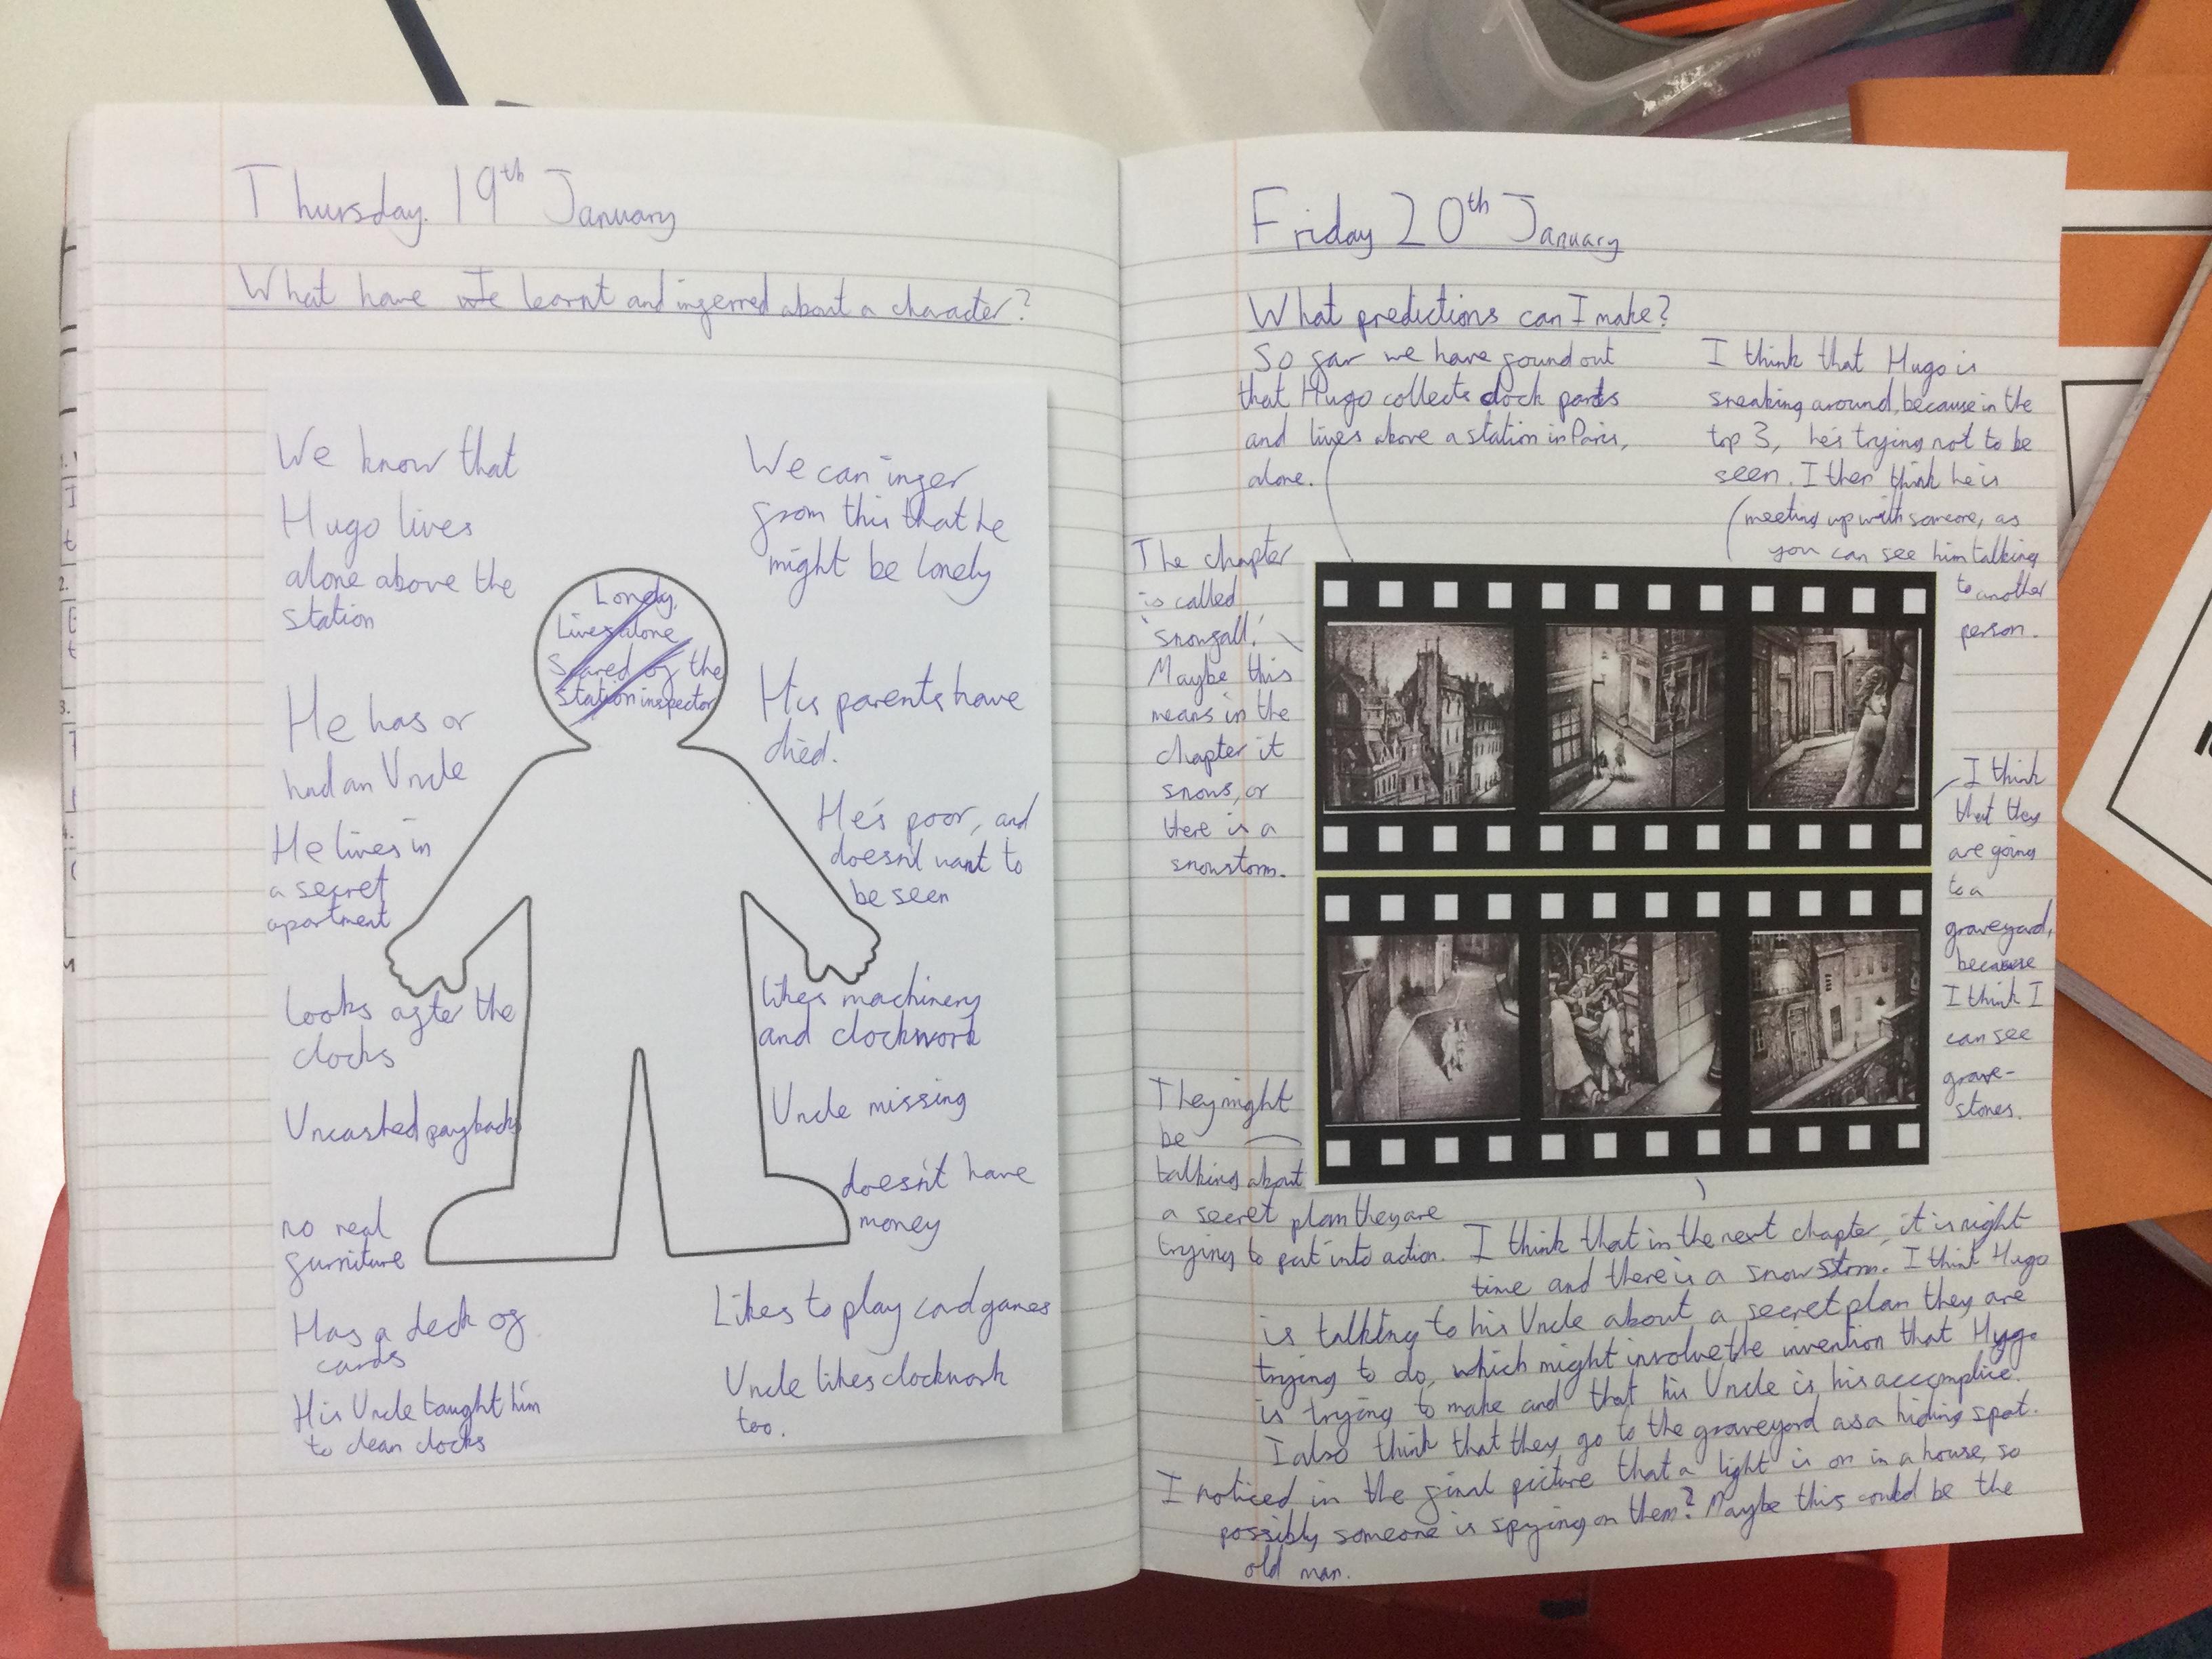 Thursday 19th January
What have we learnt and inferred about a character?
We know that
Hugo lives
alone above the
station
He has or
had an Uncle
He lives in
a secret
apartment
Looks after the
clocks
Uncashed paybacks
no real
furniture
Has a deck of
cards
His Uncle taught him
to clean clocks
Lonely
Lives alone
Scared of the
station inspector
We can infer
from this that he
might be lonely
His parents have
died.
He's poor, and
doesn't want to
be seen
likes machinery
and clockwork
Uncle missing
doesn't have
money
Likes to play card games
Uncle likes clockwork
too.
Friday 20th January
What predictions can I make?
So far we have found out
that Hugo collects clock parts
and lives above a station in Paris,
alone.
I think that Hugo is
sneaking around, because in the
top 3, he's trying not to be
seen. I then think he is
meeting up with someone, as
you can see him talking
to another
person.
The chapter
is called
'snowfall.'
Maybe this
means in the
chapter it
snows, or
there is a
snowstorm.
I think
that they
are going
to a
graveyard,
because
I think I
can see
grave-
stones.
They might
be
talking about
a secret plan they are
trying to put into action.
I think that in the next chapter, it is night
time and there is a snow storm. I think Hugo
is talking to his Uncle about a secret plan they are
trying to do, which might involve the invention that Hugo
is trying to make and that his Uncle is his accomplice.
I also think that they go to the graveyard as a hiding spot.
I noticed in the final picture that a light is on in a house, so
possibly someone is spying on them? Maybe this could be the
old man.